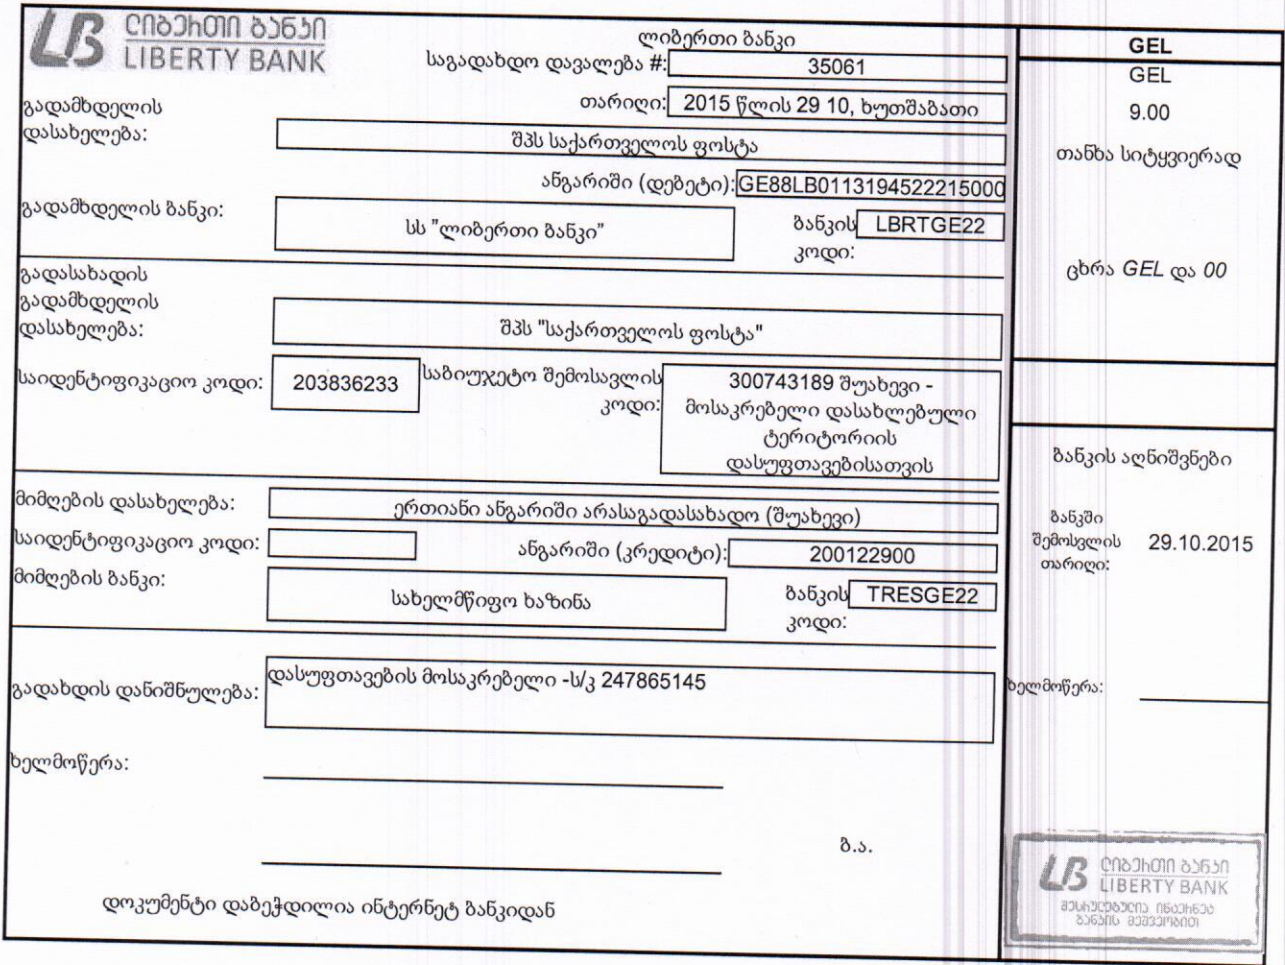 ლიბერთი ბანკი
LIBERTY BANK
ლიბერთი ბანკი
საგადახდო დავალება #: 35061
თარიღი: 2015 წლის 29 10, ხუთშაბათი
გადამხდელის
დასახელება:
შპს საქართველოს ფოსტა
ანგარიში (დებეტი): GE88LB0113194522215000
გადამხდელის ბანკი:
სს "ლიბერთი ბანკი"
ბანკის LBRTGE22
კოდი:
გადასახადის
გადამხდელის
დასახელება:
შპს "საქართველოს ფოსტა"
საიდენტიფიკაციო კოდი: 203836233
საბიუჯეტო შემოსავლის
კოდი:
300743189 შუახევი -
მოსაკრებელი დასახლებული
ტერიტორიის
დასუფთავებისათვის
მიმღების დასახელება: ერთიანი ანგარიში არასაგადასახადო (შუახევი)
საიდენტიფიკაციო კოდი:
ანგარიში (კრედიტი): 200122900
მიმღების ბანკი:
სახელმწიფო ხაზინა
ბანკის TRESGE22
კოდი:
გადახდის დანიშნულება: დასუფთავების მოსაკრებელი -ს/კ 247865145
ხელმოწერა:
ბ.ა.
დოკუმენტი დაბეჭდილია ინტერნეტ ბანკიდან
GEL
GEL
9.00
თანხა სიტყვიერად
ცხრა GEL და 00
ბანკის აღნიშვნები
ბანკში
შემოსვლის 29.10.2015
თარიღი:
ხელმოწერა:
ლიბერთი ბანკი
LIBERTY BANK
შესრულებულია ინტერნეტ
ბანკის მეშვეობით